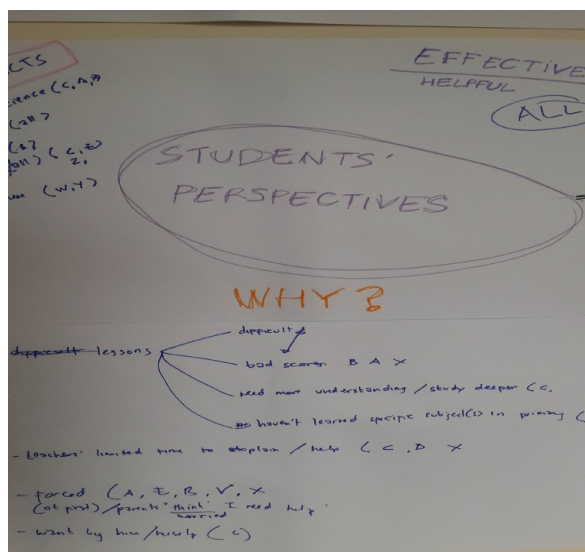 CTS
(C, A,
(all)
(all) (C, E)
2,
(W, Y)
EFFECTIVE
HELPFUL
ALL
STUDENTS'
PERSPECTIVES
WHY?
difficult lessons
difficult
bad scores B A X
need more understanding / study deeper (C,
haven't learned specific subject(s) in primary (
- teachers' limited time to explain / help (C, D X
- Forced (A, E, B, V, X
(at first) / parents "think" I need help
worried
- want by him / herself (C)